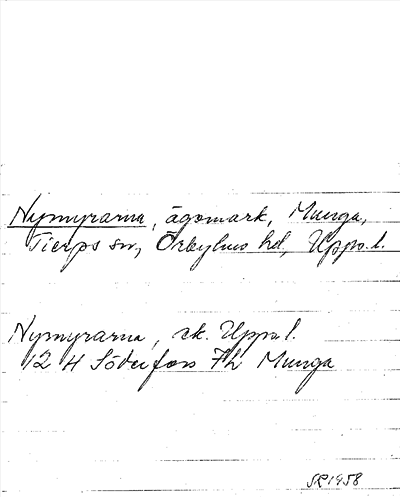 Nymyrarna, ägomark, Munga,
Tierps sn, Örbyhus hd, Upps. l.
Nymyrarna, ek. Upps l.
12 H Söderfors 7h Munga
SR1958